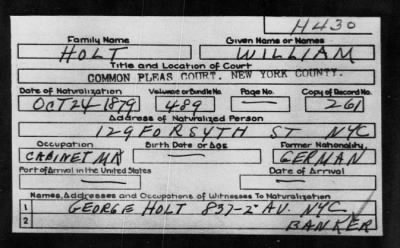 H430
Family Name Given Name or Names
HOLT WILLIAM
Title and Location of Court
COMMON PLEAS COURT, NEW YORK COUNTY.
Date of Naturalization Volume or Bundle No. Page No. Copy of Record No.
OCT 24 1879 489 — 261
Address of Naturalized Person
129 FORSYTH ST NYC
Occupation Birth Date or Age Former Nationality
CABINET MK — GERMAN
Port of Arrival in the United States Date of Arrival
— —
Names, Addresses and Occupations of Witnesses To Naturalization
1 GEORGE HOLT 837-2 AV. NYC
2 BANKER